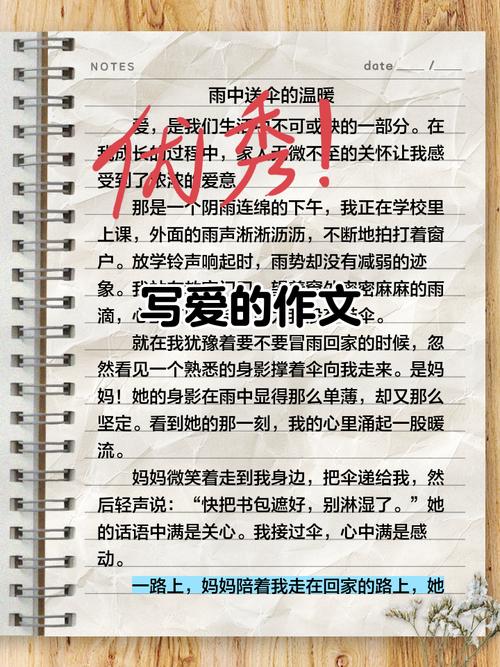 NOTES
date ____ /____
雨中送伞的温暖
优秀！
爱，是我们生活中不可或缺的一部分。在
我成长的过程中，家人无微不至的关怀让我感
受到了浓浓的爱意
那是一个阴雨连绵的下午，我正在学校里
上课，外面的雨声淅淅沥沥，不断地拍打着窗
户。放学铃声响起时，雨势却没有减弱的迹
象。密密麻麻的雨
写爱的作文
滴，伞。
就在我犹豫着要不要冒雨回家的时候，忽
然看见一个熟悉的身影撑着伞向我走来。是妈
妈！她的身影在雨中显得那么单薄，却又那么
坚定。看到她的那一刻，我的心里涌起一股暖
流。
妈妈微笑着走到我身边，把伞递给我，然
后轻声说：“快把书包遮好，别淋湿了。”她
的话语中满是关心。我接过伞，心中满是感
动。
一路上，妈妈陪着我走在回家的路上，她